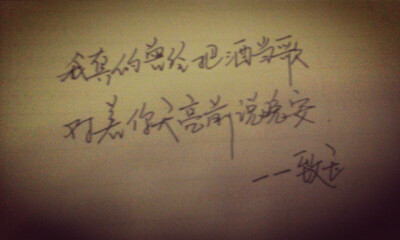 我真的曾经把酒当歌
对着你天亮前说晚安.
——致